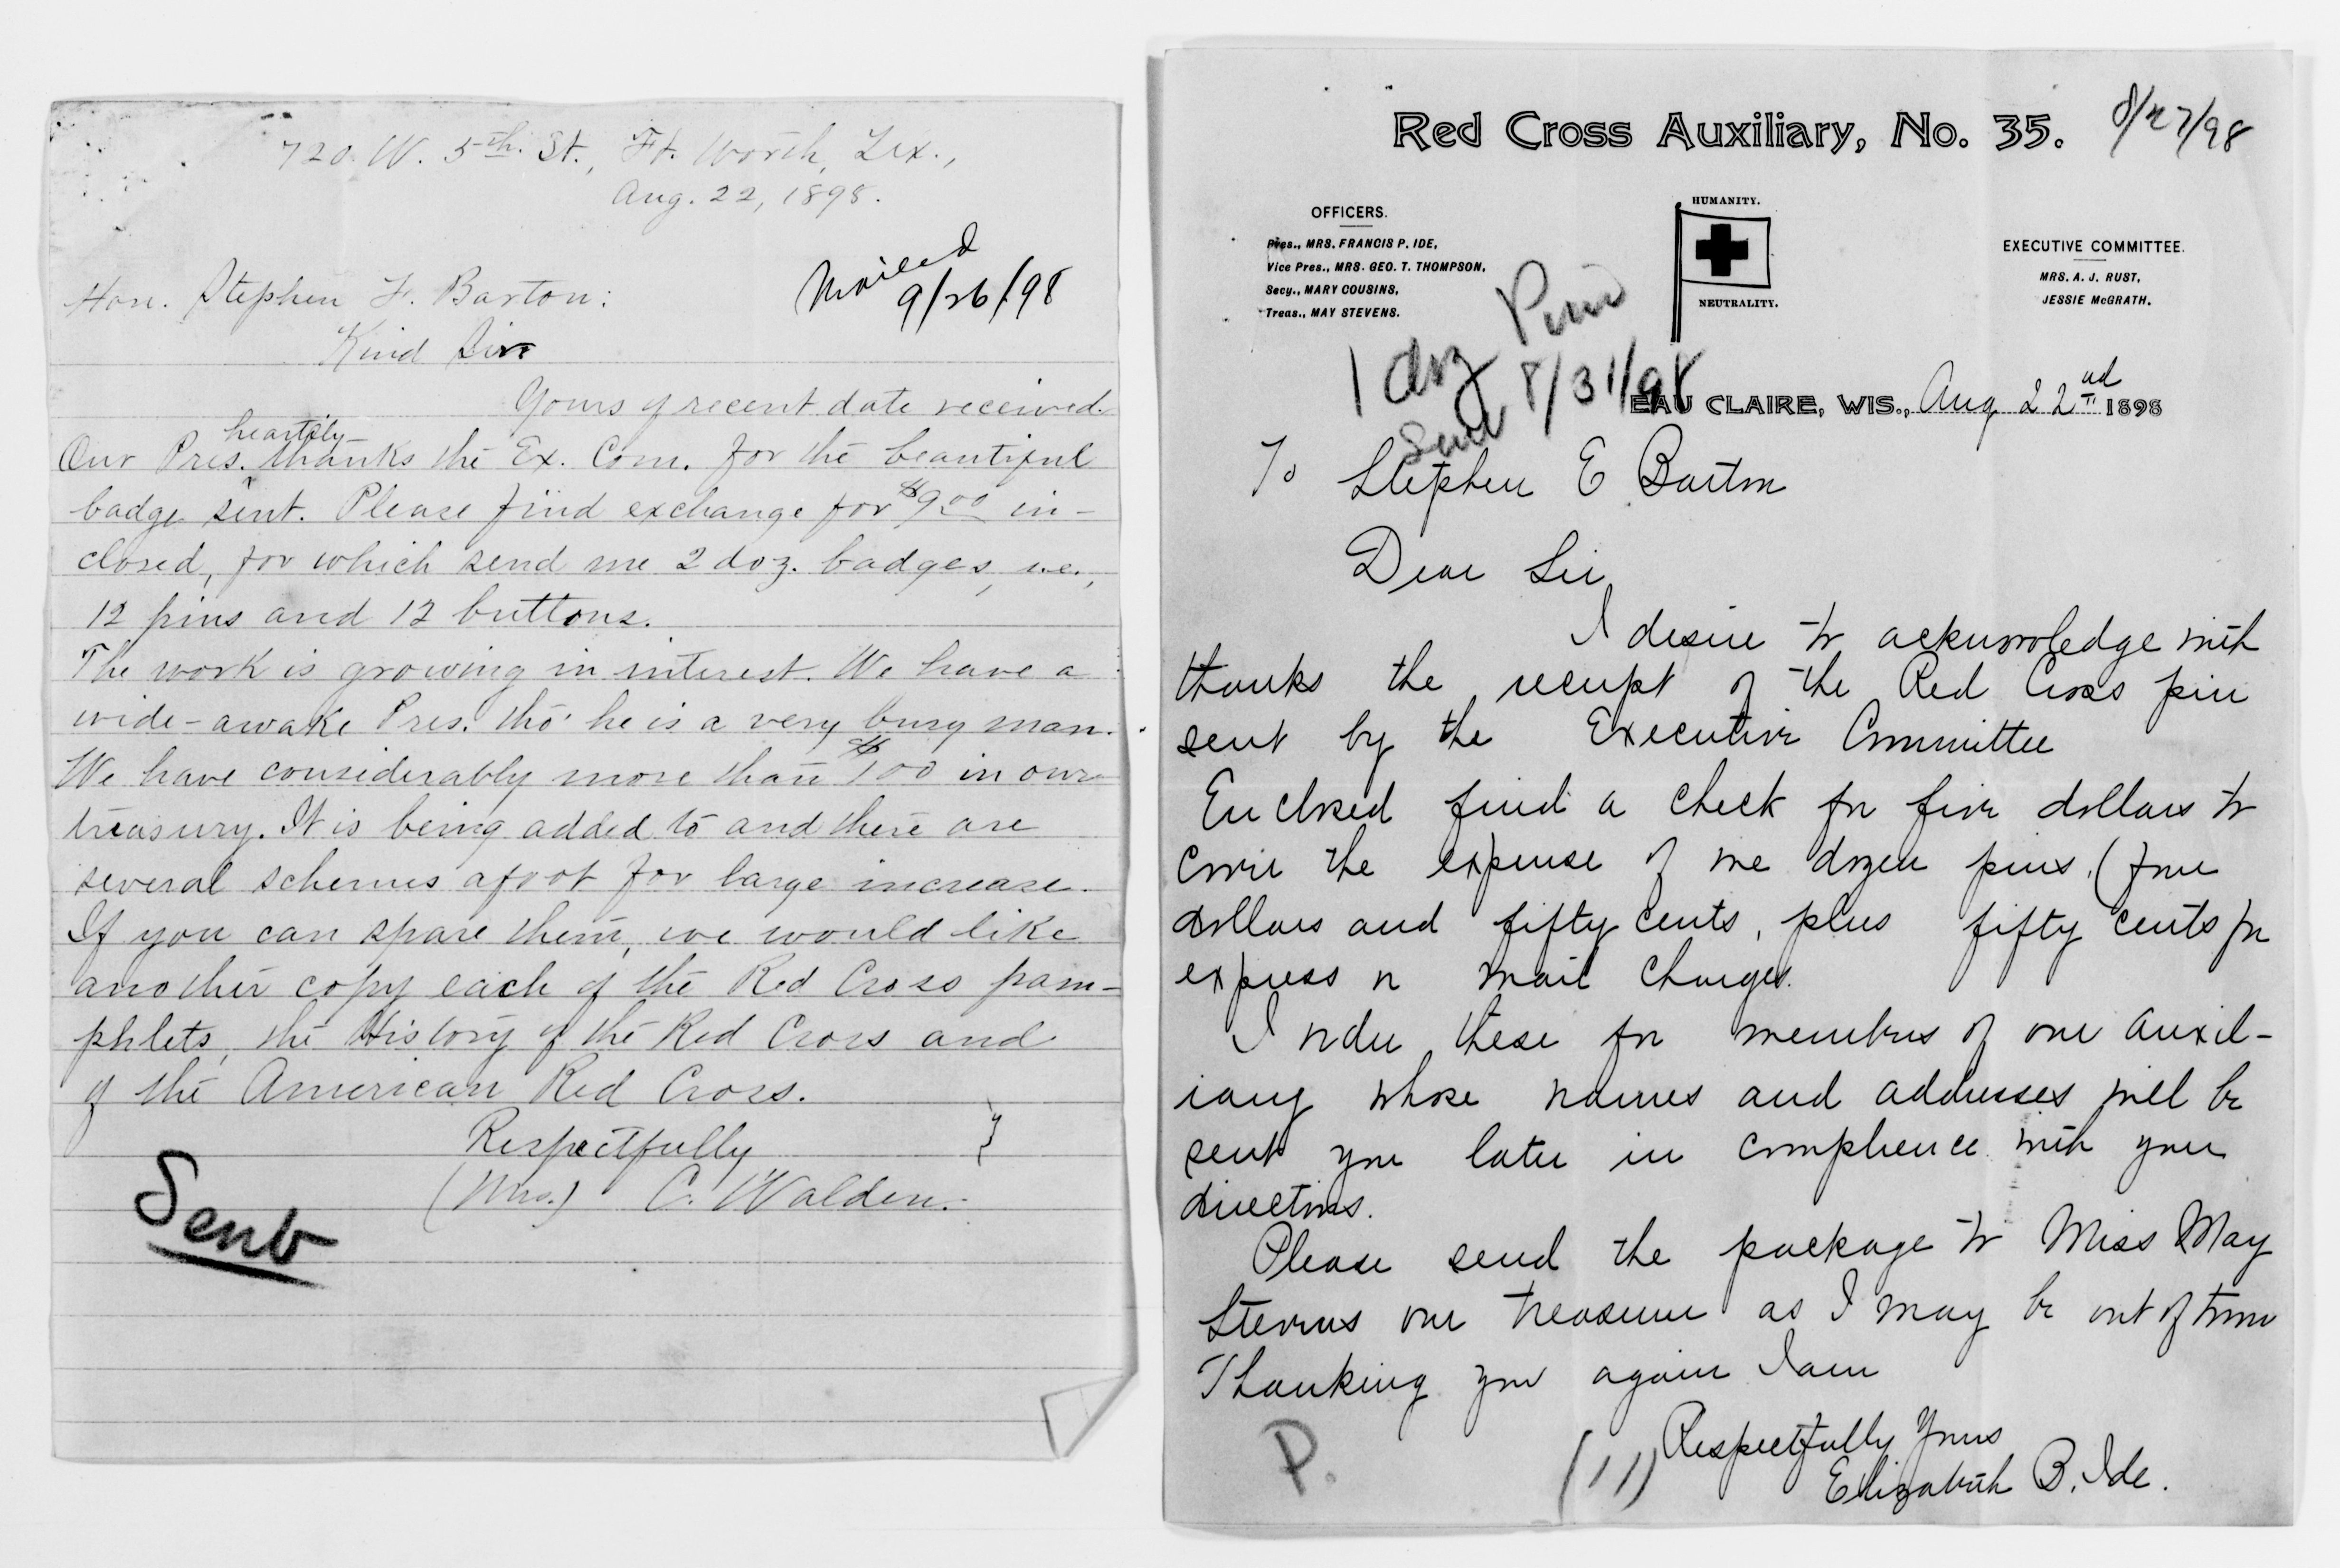 720 W. 5th. St., Ft. Worth, Tex.,
Aug. 22, 1898.
Mailed
9/26/98
Hon. Stephen F. Barton:
Kind Sir
Yours of recent date received.
heartily
Our Pres. thanks the Ex. Com. for the beautiful
badge sent. Please find exchange for $9.00 in-
closed, for which send me 2 doz. badges, i.e.,
12 pins and 12 buttons.
The work is growing in interest. We have a
wide-awake Pres. tho' he is a very busy man.
We have considerably more than $100 in our
treasury. It is being added to and there are
several schemes afoot for large increase.
If you can spare them, we would like
another copy each of the Red Cross pam-
phlets, the History of the Red Cross and
of the American Red Cross.
Respectfully
(Mrs.) C. Walden.
Sent
Red Cross Auxiliary, No. 35.
8/27/98
OFFICERS.
Pres., MRS. FRANCIS P. IDE,
Vice Pres., MRS. GEO. T. THOMPSON,
Secy., MARY COUSINS,
Treas., MAY STEVENS.
HUMANITY.
NEUTRALITY.
EXECUTIVE COMMITTEE.
MRS. A. J. RUST,
JESSIE McGRATH.
1 doz Pins
Sent 8/31/98
EAU CLAIRE, WIS., Aug 22nd 1898
To Stephen E Barton
Dear Sir
I desire to acknowledge with
thanks the receipt of the Red Cross pin
sent by the Executive Committee
Enclosed find a check for five dollars to
cover the expense of one dozen pins. (four
dollars and fifty cents, plus fifty cents for
express or mail charges.
I order these for members of our auxil-
iary whose names and addresses will be
sent you later in complience with your
directions.
Please send the package to Miss May
Stevens our treasurer as I may be out of town
Thanking you again I am
Respectfully Yours
Elizabeth B. Ide.
P.
(11)